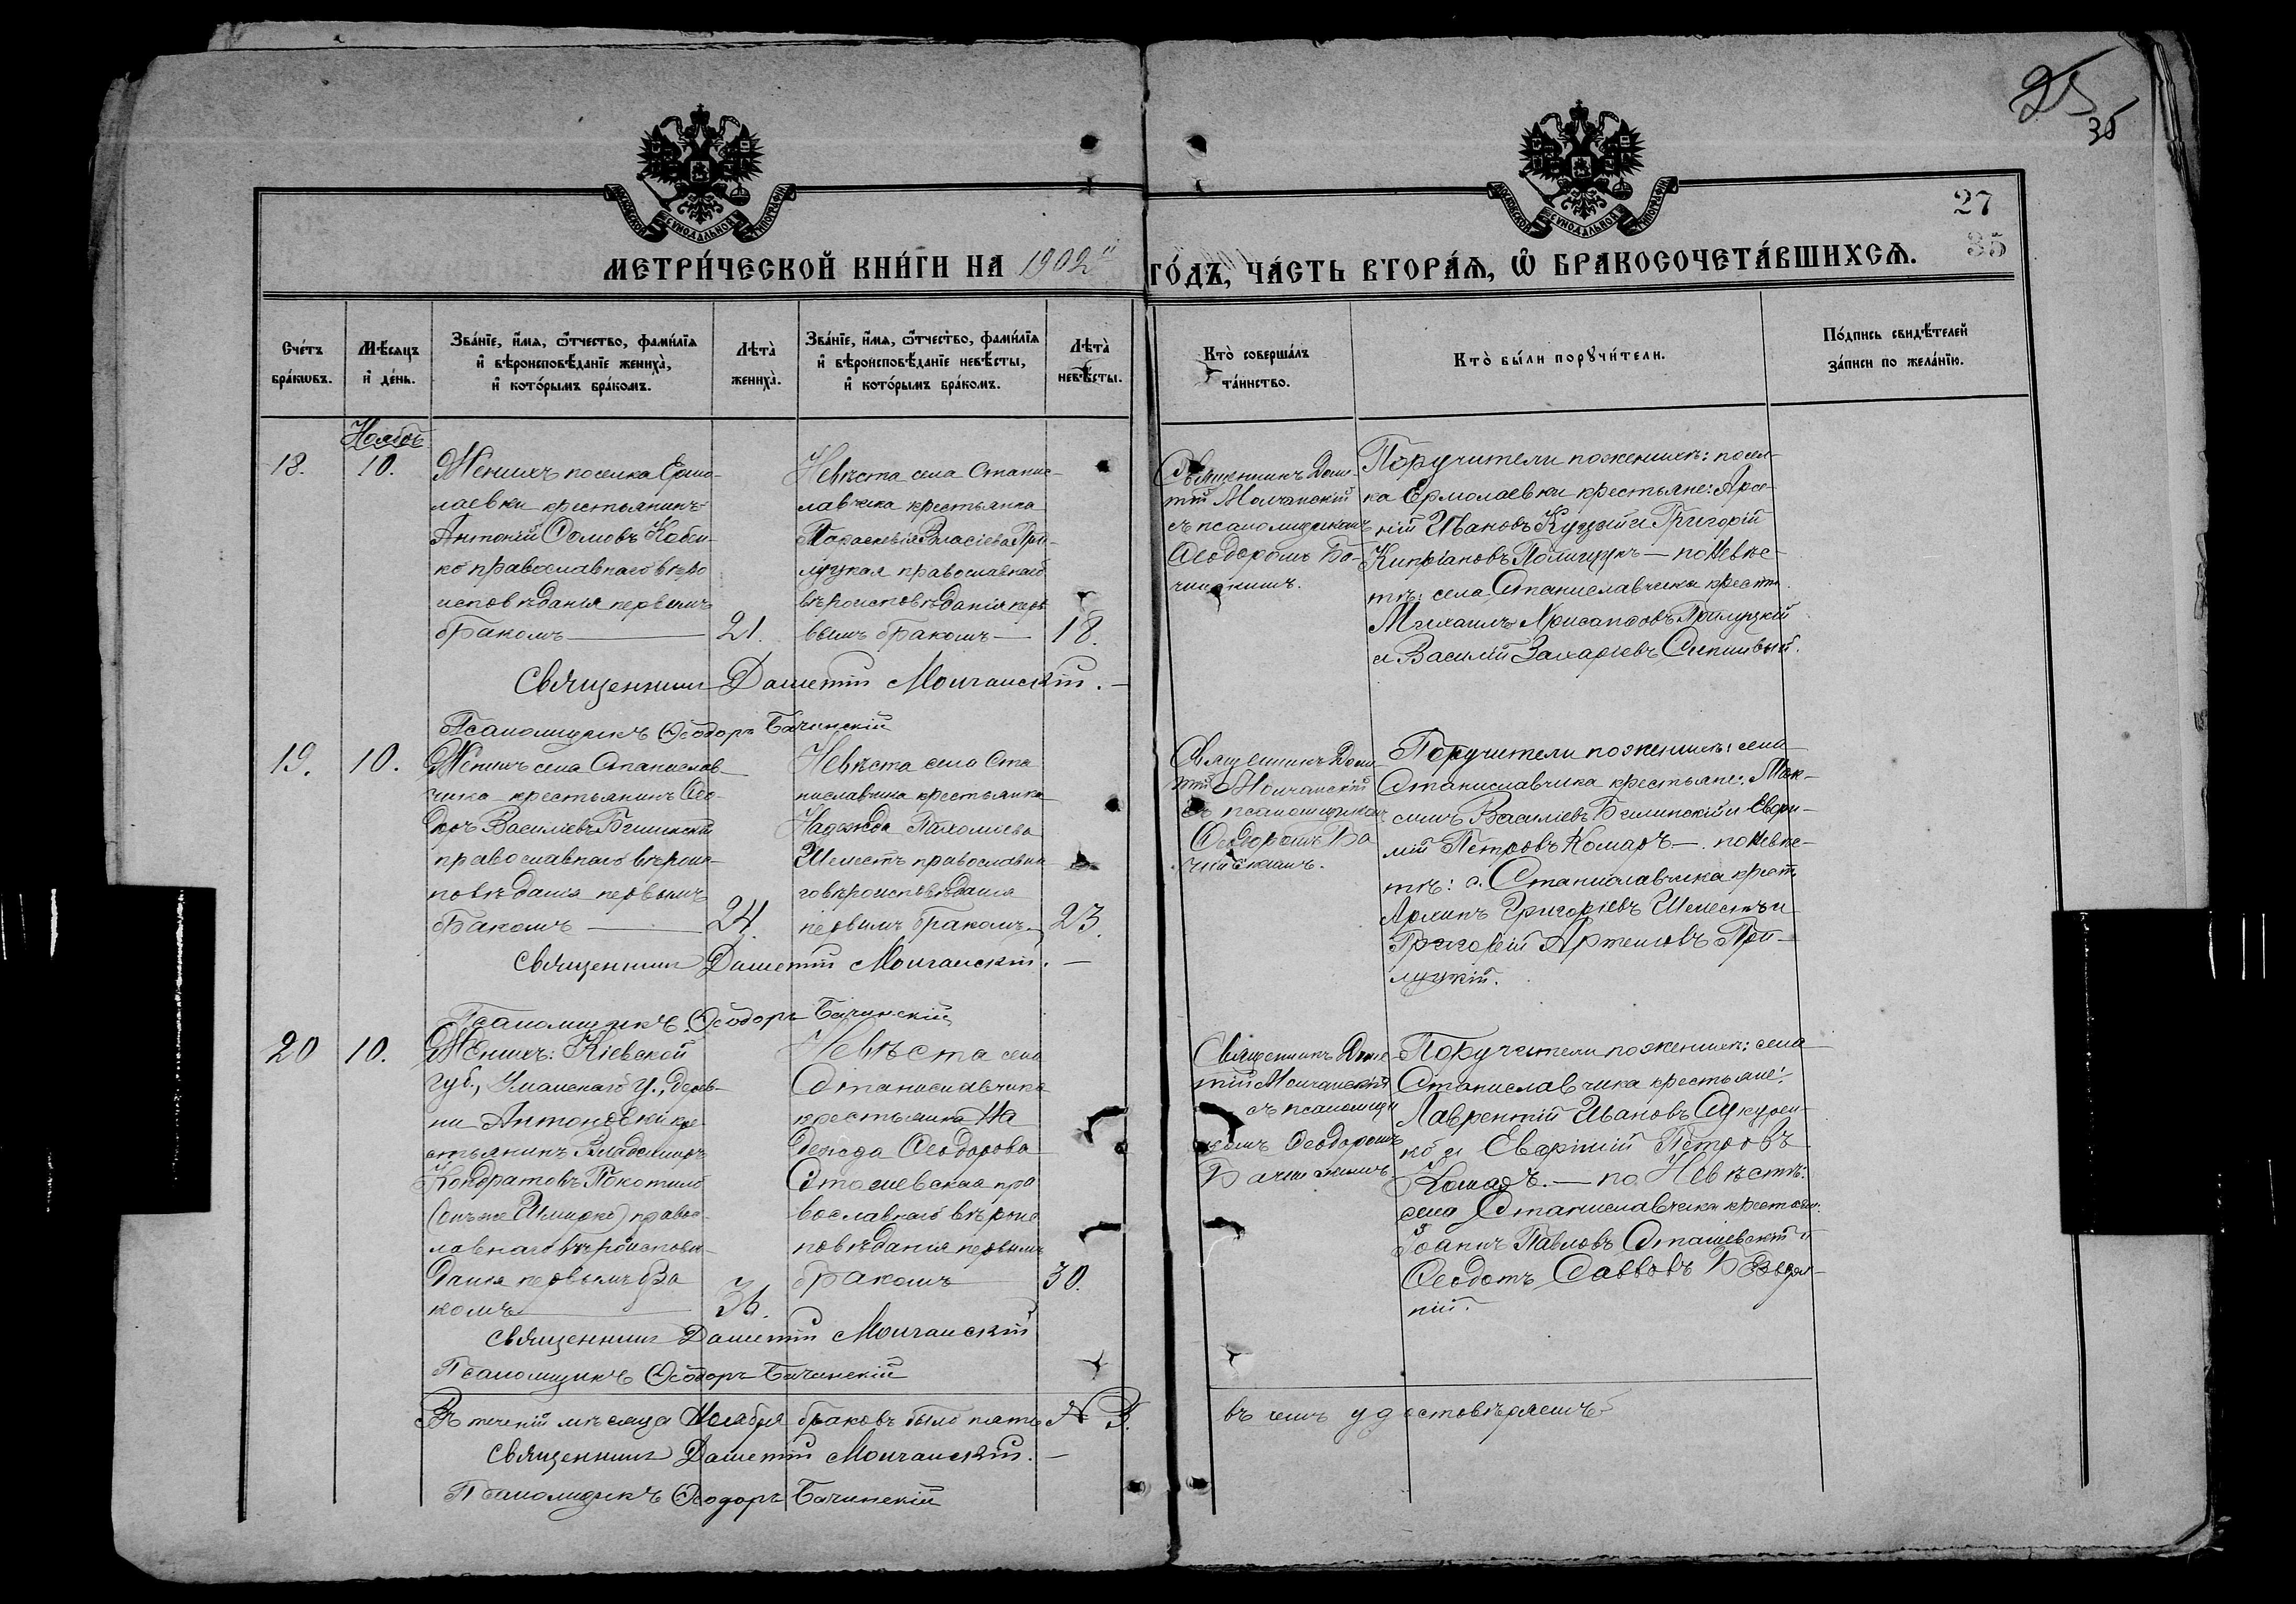 25
35
27
35
МЕТРИ́ЧЕСКОЙ КНИ́ГИ НА 1902й ГО́ДЪ, ЧА́СТЬ ВТОРА́Я, Ѡ БРАКОСОЧЕТА́ВШИХСЯ.
Сче́тъ бра́кѡвъ.
Мѣ́сяцъ и де́нь.
Зва́нїе, и́мя, ѻ́тчество, фами́лїя и вѣроисповѣ́данїе жениха̀, и кото́рымъ бра́комъ.
Лѣта̀ жениха̀.
Зва́нїе, и́мя, ѻ́тчество, фами́лїя и вѣроисповѣ́данїе невѣ́сты, и кото́рымъ бра́комъ.
Лѣта̀ невѣ́сты.
Кто̀ соверша́лъ та́инство.
Кто̀ бы́ли порꙋчи́тели.
По́дпись свидѣ́телей за́писи по жела́нїю.
Ноябрь
18.
10.
Женихъ поселка Ермо-
лаевки крестьянинъ
Антоній
православнаго вѣро
исповѣданія первымъ
бракомъ
21.
Невѣста села Станис-
лавчика крестьянка
Параскевія Власіева При-
луцкая православнаго
вѣроисповѣданія пер
вымъ бракомъ
18.
Священникъ Доме-
тій Молчанскій
съ псаломщикомъ
Ѳеодоромъ Ба-
чинскимъ.
Поручители по женихѣ: посел-
ка Ермолаевки крестьяне: Арсе-
ній Ивановъ Куцый и Григорій
Кипріановъ Полищукъ — по невѣс-
тѣ: села Станиславчика крестьян.
Михаилъ Хрисанфовъ Прилуцкій
и Василій Захаріевъ
Священникъ Дометій Молчанскій. —
Псаломщикъ Ѳеодоръ Бачинскій
19.
10.
Женихъ села Станислав-
чика крестьянинъ Ѳео-
доръ Василіевъ
православнаго вѣроис-
повѣданія первымъ
бракомъ
24.
Невѣста села Ста
ниславчика крестьянка
Надежда Пахоміева
Шелестъ православна
го вѣроисповѣданія
первымъ бракомъ
23.
Священникъ Доме-
тій Молчанскій
съ псаломщикомъ
Ѳеодоромъ Ба
чинскимъ.
Поручители по женихѣ: села
Станиславчика крестьяне: Мак-
симъ Василіевъ и Евфи-
мій Петровъ Комаръ —. по невѣс-
тѣ: с. Станиславчика крест.
Архипъ Григоріевъ Шелестъ и
Григорій Артемовъ При-
луцкій.
Священникъ Дометій Молчанскій. —
Псаломщикъ Ѳеодоръ Бачинскій
20
10.
Женихъ: Кіевской
губ., Уманскаго у., дерев-
ни Антоновки кре
стьянинъ Владимиръ
Кондратовъ Покотило
(онъ же ) правос-
лавнаго вѣроисповѣ-
данія первымъ бра
комъ
36.
Невѣста села
Станиславчика
крестьянка На
дежда Ѳеодорова
Сташевская пра
вославнаго вѣроис
повѣданія первымъ
бракомъ
30.
Священникъ Доме
тій Молчанскій
съ псаломщи
комъ Ѳеодоромъ
Бачинскимъ
Поручители по женихѣ: села
Станиславчика крестьяне:
Лаврентій Ивановъ
и Евфимій Петровъ
Комаръ. — по Невѣстѣ:
села Станиславчика крестьян:
Іоаннъ Павловъ Сташевскій и
Ѳеодотъ Савовъ
Священникъ Дометій Молчанскій
Псаломщикъ Ѳеодоръ Бачинскій
Въ теченіи мѣсяца Ноября браковъ было пять въ чемъ удостовѣряемъ
Священникъ Дометій Молчанскій. —
Псаломщикъ Ѳеодоръ Бачинскій